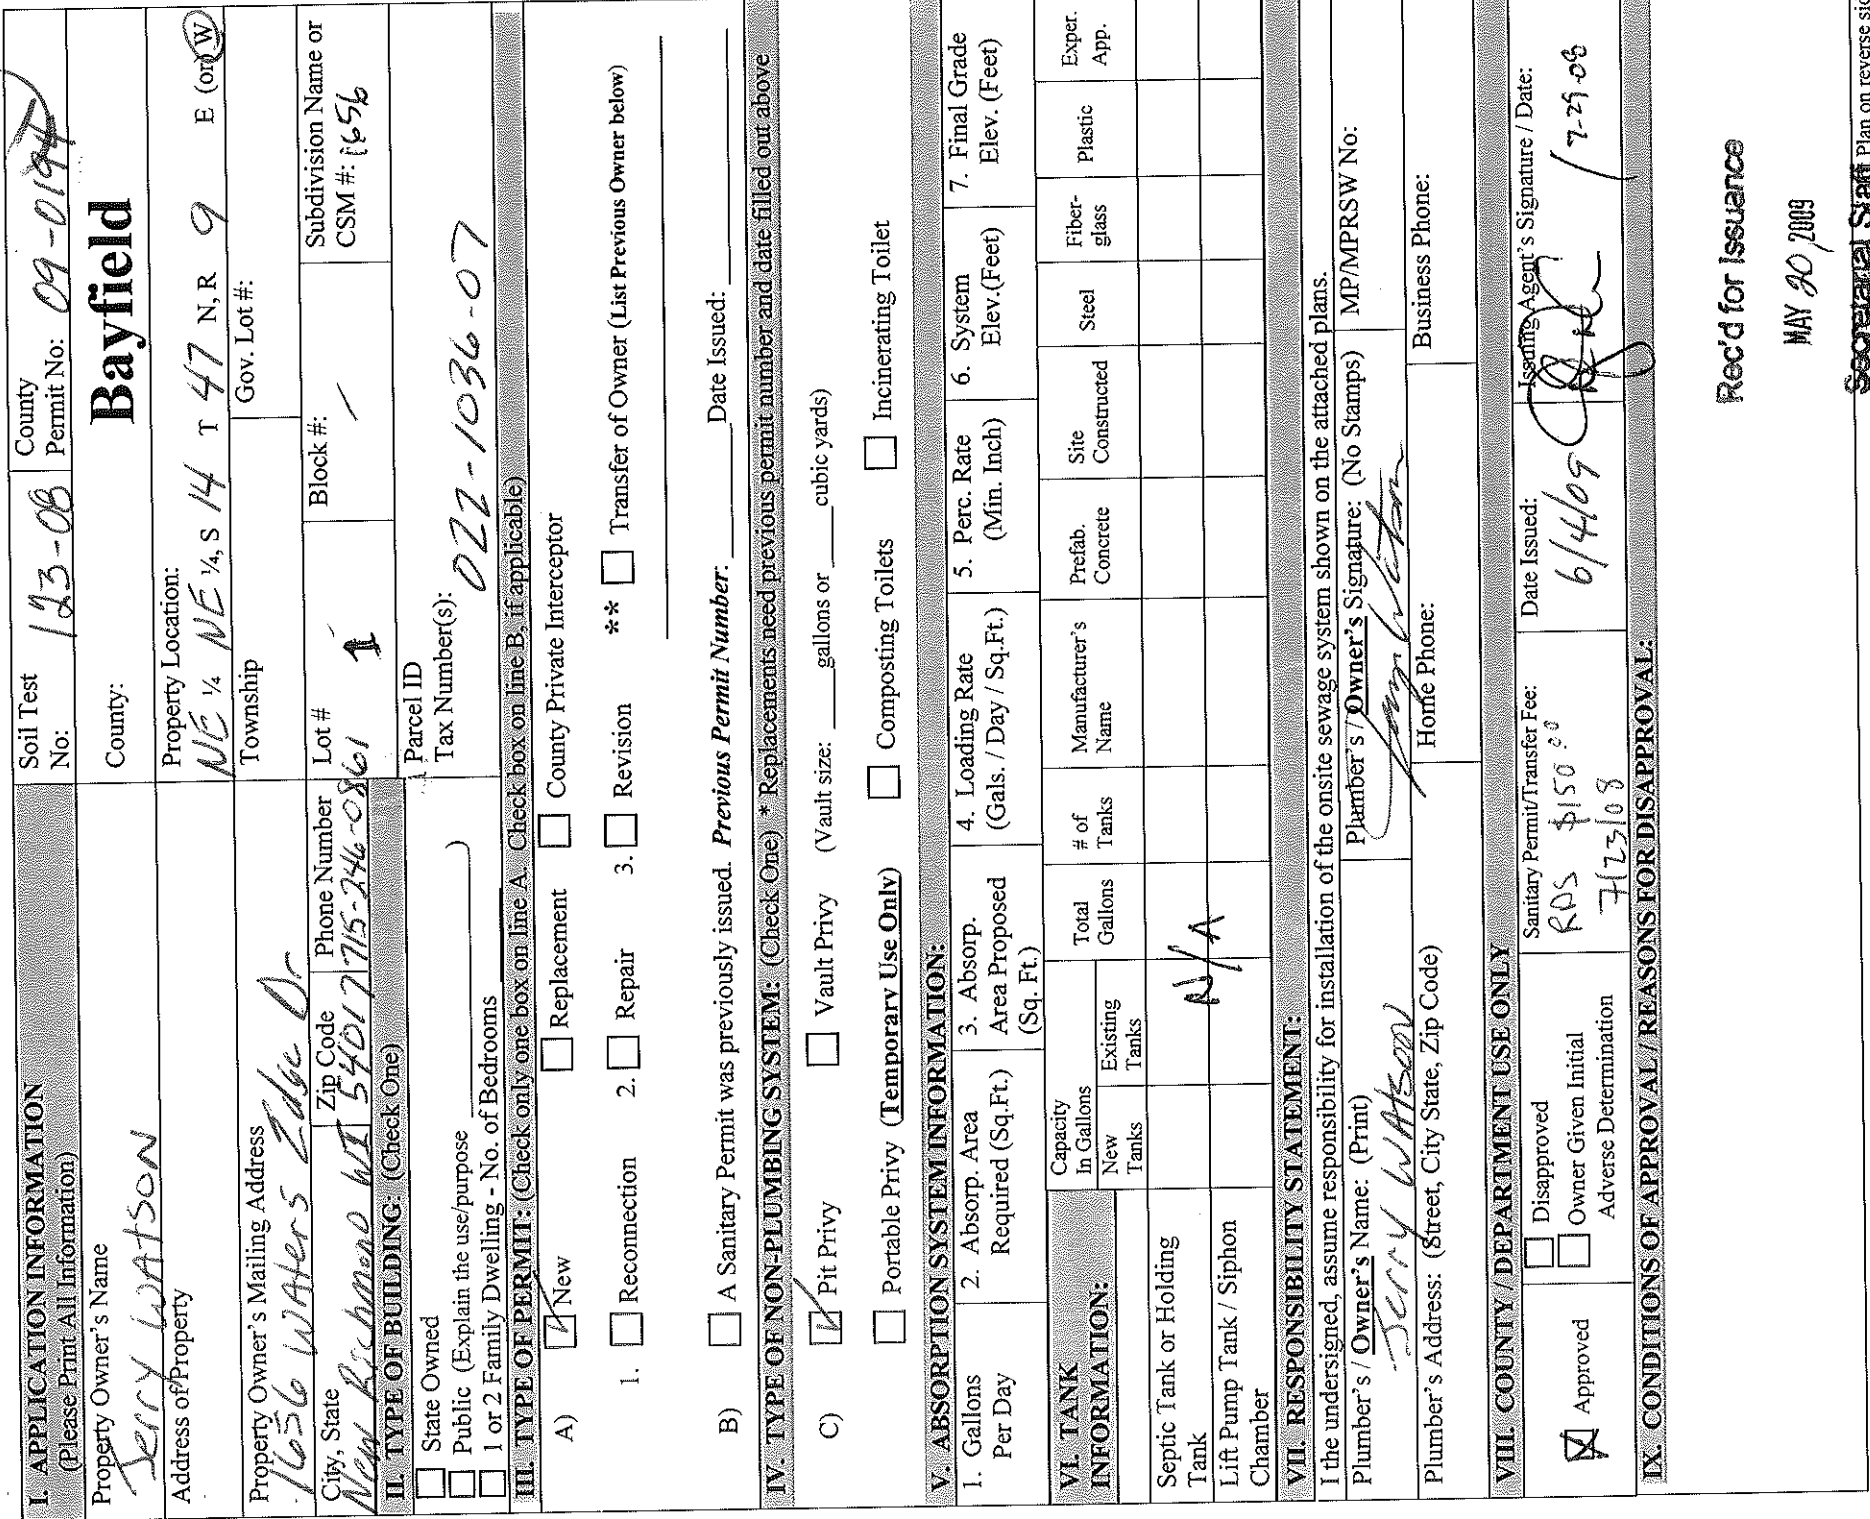 I. APPLICATION INFORMATION
(Please Print All Information)
Soil Test No: 123-08
County Permit No: 09-0194
Property Owner's Name
Jerry Watson
County: Bayfield
Address of Property
Property Location:
NE 1/4 NE 1/4, S 14 T 47 N, R 9 E (or) W
Property Owner's Mailing Address
1656 Waters Edge Dr
Township
Gov. Lot #:
City, State
Zip Code
Phone Number
New Richmond WI 54017 715-246-0861
Lot # 1
Block #: /
Subdivision Name or
CSM #: 1656
II. TYPE OF BUILDING: (Check One)
State Owned
Public (Explain the use/purpose ____)
1 or 2 Family Dwelling - No. of Bedrooms ____
Parcel ID
Tax Number(s):
022-1036-07
III. TYPE OF PERMIT: (Check only one box on line A. Check box on line B, if applicable)
A) New Replacement County Private Interceptor
1. Reconnection 2. Repair 3. Revision ** Transfer of Owner (List Previous Owner below)
B) A Sanitary Permit was previously issued. Previous Permit Number: ____ Date Issued: ____
IV. TYPE OF NON-PLUMBING SYSTEM: (Check One) * Replacements need previous permit number and date filled out above
C) Pit Privy Vault Privy (Vault size: ____ gallons or ____ cubic yards)
Portable Privy (Temporary Use Only) Composting Toilets Incinerating Toilet
V. ABSORPTION SYSTEM INFORMATION:
1. Gallons Per Day
2. Absorp. Area Required (Sq.Ft.)
3. Absorp. Area Proposed (Sq. Ft.)
4. Loading Rate (Gals. / Day / Sq.Ft.)
5. Perc. Rate (Min. Inch)
6. System Elev.(Feet)
7. Final Grade Elev. (Feet)
VI. TANK INFORMATION:
Capacity In Gallons
New Tanks
Existing Tanks
Total Gallons
# of Tanks
Manufacturer's Name
Prefab. Concrete
Site Constructed
Steel
Fiber-glass
Plastic
Exper. App.
Septic Tank or Holding Tank
N/A
Lift Pump Tank / Siphon Chamber
VII. RESPONSIBILITY STATEMENT:
I the undersigned, assume responsibility for installation of the onsite sewage system shown on the attached plans.
Plumber's / Owner's Name: (Print)
Jerry Watson
Plumber's / Owner's Signature: (No Stamps)
Jerry Watson
MP/MPRSW No:
Plumber's Address: (Street, City State, Zip Code)
Home Phone:
Business Phone:
VIII. COUNTY / DEPARTMENT USE ONLY
Approved
Disapproved
Owner Given Initial
Adverse Determination
Sanitary Permit/Transfer Fee:
RDS $150.00
7/23/08
Date Issued:
6/4/09
Issuing Agent's Signature / Date:
/ 7-29-08
IX. CONDITIONS OF APPROVAL / REASONS FOR DISAPPROVAL:
Rec'd for Issuance
MAY 20, 2009
Secretarial Staff
Plan on reverse